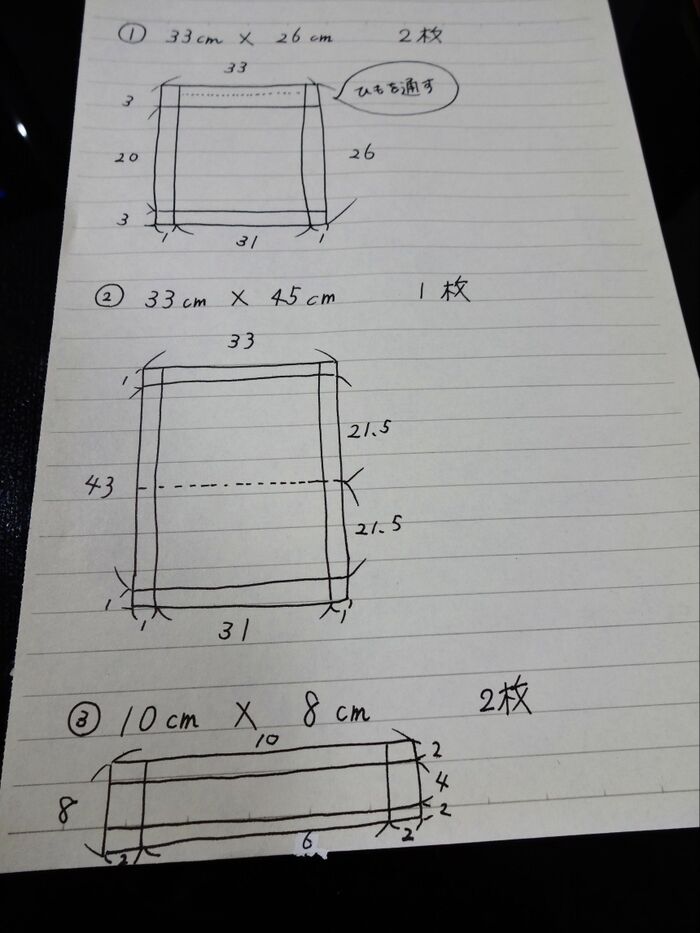 ① 33cm × 26cm 2枚
33
ひもを通す
3
20
26
3
1 31 1
② 33cm × 45cm 1枚
33
1
21.5
43
21.5
1
1 31 1
③ 10cm × 8cm 2枚
10
2
4
8
2
2 6 2